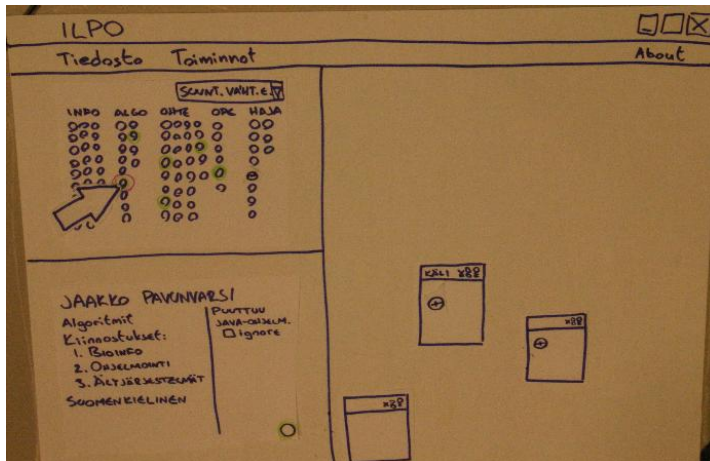 ILPO
Tiedosto Toiminnot About
SUUNT. VAIHT. E.
INFO ALGO OHJE OPE HAJA
KÄLI x88
x88
x88
JAAKKO PAVUNVARSI
Algoritmit
Kiinnostukset:
1. BIOINFO
2. OHJELMOINTI
3. ÄLYJÄRJESTELMÄT
SUOMENKIELINEN
PUUTTUU
JAVA-OHJELM.
Ignore